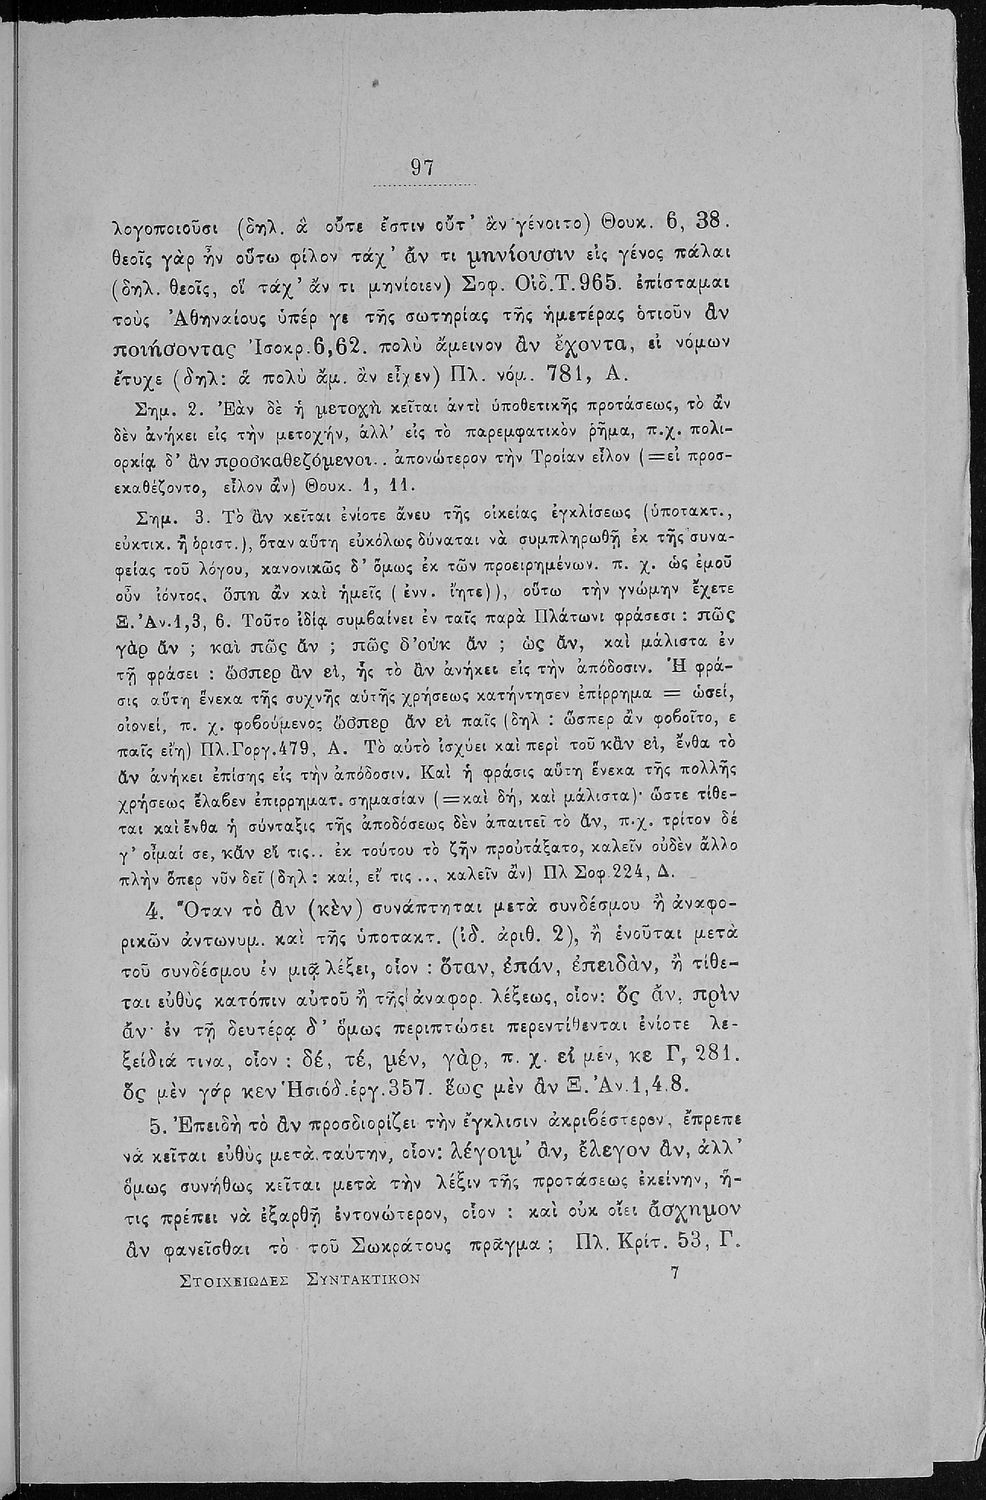 97
λογοποιοῦσι (δηλ. ἃ οὔτε ἔστιν οὔτ' ἂν γένοιτο) Θουκ. 6, 38.
θεοῖς γὰρ ἦν οὕτω φίλον τάχ' ἄν τι μηνίουσιν εἰς γένος πάλαι
(δηλ. θεοῖς, οἵ τάχ' ἄν τι μηνίοιεν) Σοφ. Οἰδ.Τ.965. ἐπίσταμαι
τοὺς Ἀθηναίους ὑπέρ γε τῆς σωτηρίας τῆς ἡμετέρας ὁτιοῦν ἂν
ποιήσοντας Ἰσοκρ.6,62. πολὺ ἄμεινον ἂν ἔχοντα, εἰ νόμων
ἔτυχε (δηλ: ἃ πολὺ ἄμ. ἂν εἶχεν) Πλ. νόμ. 781, Α.
Σημ. 2. Ἐὰν δὲ ἡ μετοχὴ κεῖται ἀντὶ ὑποθετικῆς προτάσεως, τὸ ἂν
δὲν ἀνήκει εἰς τὴν μετοχήν, ἀλλ' εἰς τὸ παρεμφατικὸν ῥῆμα, π.χ. πολι-
ορκίᾳ δ' ἂν προσκαθεζόμενοι.. ἀπονώτερον τὴν Τροίαν εἷλον (=εἰ προσ-
εκαθέζοντο, εἷλον ἂν) Θουκ. 1, 11.
Σημ. 3. Τὸ ἂν κεῖται ἐνίοτε ἄνευ τῆς οἰκείας ἐγκλίσεως (ὑποτακτ.,
εὐκτικ. ἢ ὁριστ.), ὅταν αὕτη εὐκόλως δύναται νὰ συμπληρωθῇ ἐκ τῆς συνα-
φείας τοῦ λόγου, κανονικῶς δ' ὅμως ἐκ τῶν προειρημένων. π. χ. ὡς ἐμοῦ
οὖν ἰόντος, ὅπη ἂν καὶ ἡμεῖς (ἐνν. ἴητε)), οὕτω τὴν γνώμην ἔχετε
Ξ. Ἀν.1,3, 6. Τοῦτο ἰδίᾳ συμβαίνει ἐν ταῖς παρὰ Πλάτωνι φράσεσι : πῶς
γὰρ ἄν ; καὶ πῶς ἄν ; πῶς δ'οὐκ ἄν ; ὡς ἄν, καὶ μάλιστα ἐν
τῇ φράσει : ὥσπερ ἂν εἰ, ἧς τὸ ἂν ἀνήκει εἰς τὴν ἀπόδοσιν. Ἡ φρά-
σις αὕτη ἕνεκα τῆς συχνῆς αὐτῆς χρήσεως κατήντησεν ἐπίρρημα = ὡσεί,
οἱονεί, π. χ. φοβούμενος ὥσπερ ἂν εἰ παῖς (δηλ : ὥσπερ ἂν φοβοῖτο, ε
παῖς εἴη) Πλ.Γοργ.479, Α. Τὸ αὐτὸ ἰσχύει καὶ περὶ τοῦ κἂν εἰ, ἔνθα τὸ
ἂν ἀνήκει ἐπίσης εἰς τὴν ἀπόδοσιν. Καὶ ἡ φράσις αὕτη ἕνεκα τῆς πολλῆς
χρήσεως ἔλαβεν ἐπιρρηματ. σημασίαν (=καὶ δή, καὶ μάλιστα)· ὥστε τίθε-
ται καὶ ἔνθα ἡ σύνταξις τῆς ἀποδόσεως δὲν ἀπαιτεῖ τὸ ἄν, π.χ. τρίτον δέ
γ' οἶμαί σε, κἂν εἴ τις.. ἐκ τούτου τὸ ζῆν προὐτάξατο, καλεῖν οὐδὲν ἄλλο
πλὴν ὅπερ νῦν δεῖ (δηλ : καί, εἴ τις ... καλεῖν ἂν) Πλ Σοφ.224, Δ.
4. Ὅταν τὸ ἂν (κὲν) συνάπτηται μετὰ συνδέσμου ἢ ἀναφο-
ρικῶν ἀντωνυμ. καὶ τῆς ὑποτακτ. (ἰδ. ἀριθ. 2), ἢ ἑνοῦται μετὰ
τοῦ συνδέσμου ἐν μιᾷ λέξει, οἷον : ὅταν, ἐπάν, ἐπειδὰν, ἢ τίθε-
ται εὐθὺς κατόπιν αὐτοῦ ἢ τῆς ἀναφορ. λέξεως, οἷον: ὃς ἄν, πρὶν
ἄν· ἐν τῇ δευτέρᾳ δ' ὅμως περιπτώσει περεντίθενται ἐνίοτε λε-
ξείδιά τινα, οἷον : δέ, τέ, μέν, γὰρ, π. χ. εἰ μέν, κε Γ, 281.
ὃς μὲν γάρ κεν Ἡσιόδ.ἐργ.357. ἕως μὲν ἂν Ξ. Ἀν.1,4.8.
5. Ἐπειδὴ τὸ ἂν προσδιορίζει τὴν ἔγκλισιν ἀκριβέστερον, ἔπρεπε
νὰ κεῖται εὐθὺς μετὰ ταύτην, οἷον: λέγοιμ' ἂν, ἔλεγον ἂν, ἀλλ'
ὅμως συνήθως κεῖται μετὰ τὴν λέξιν τῆς προτάσεως ἐκείνην, ἥ-
τις πρέπει νὰ ἐξαρθῇ ἐντονώτερον, οἷον : καὶ οὐκ οἴει ἄσχημον
ἂν φανεῖσθαι τὸ τοῦ Σωκράτους πρᾶγμα ; Πλ. Κρίτ. 53, Γ.
ΣΤΟΙΧΕΙΩΔΕΣ ΣΥΝΤΑΚΤΙΚΟΝ 7